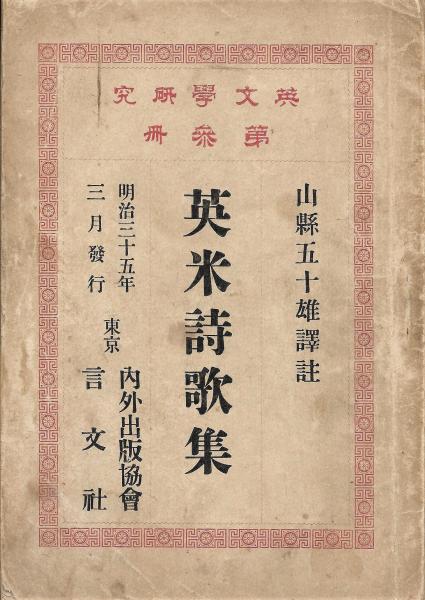 英文學研究
第叄冊
山縣五十雄譯註
英米詩歌集
明治三十五年
三月發行
東京
內外出版協會
言文社